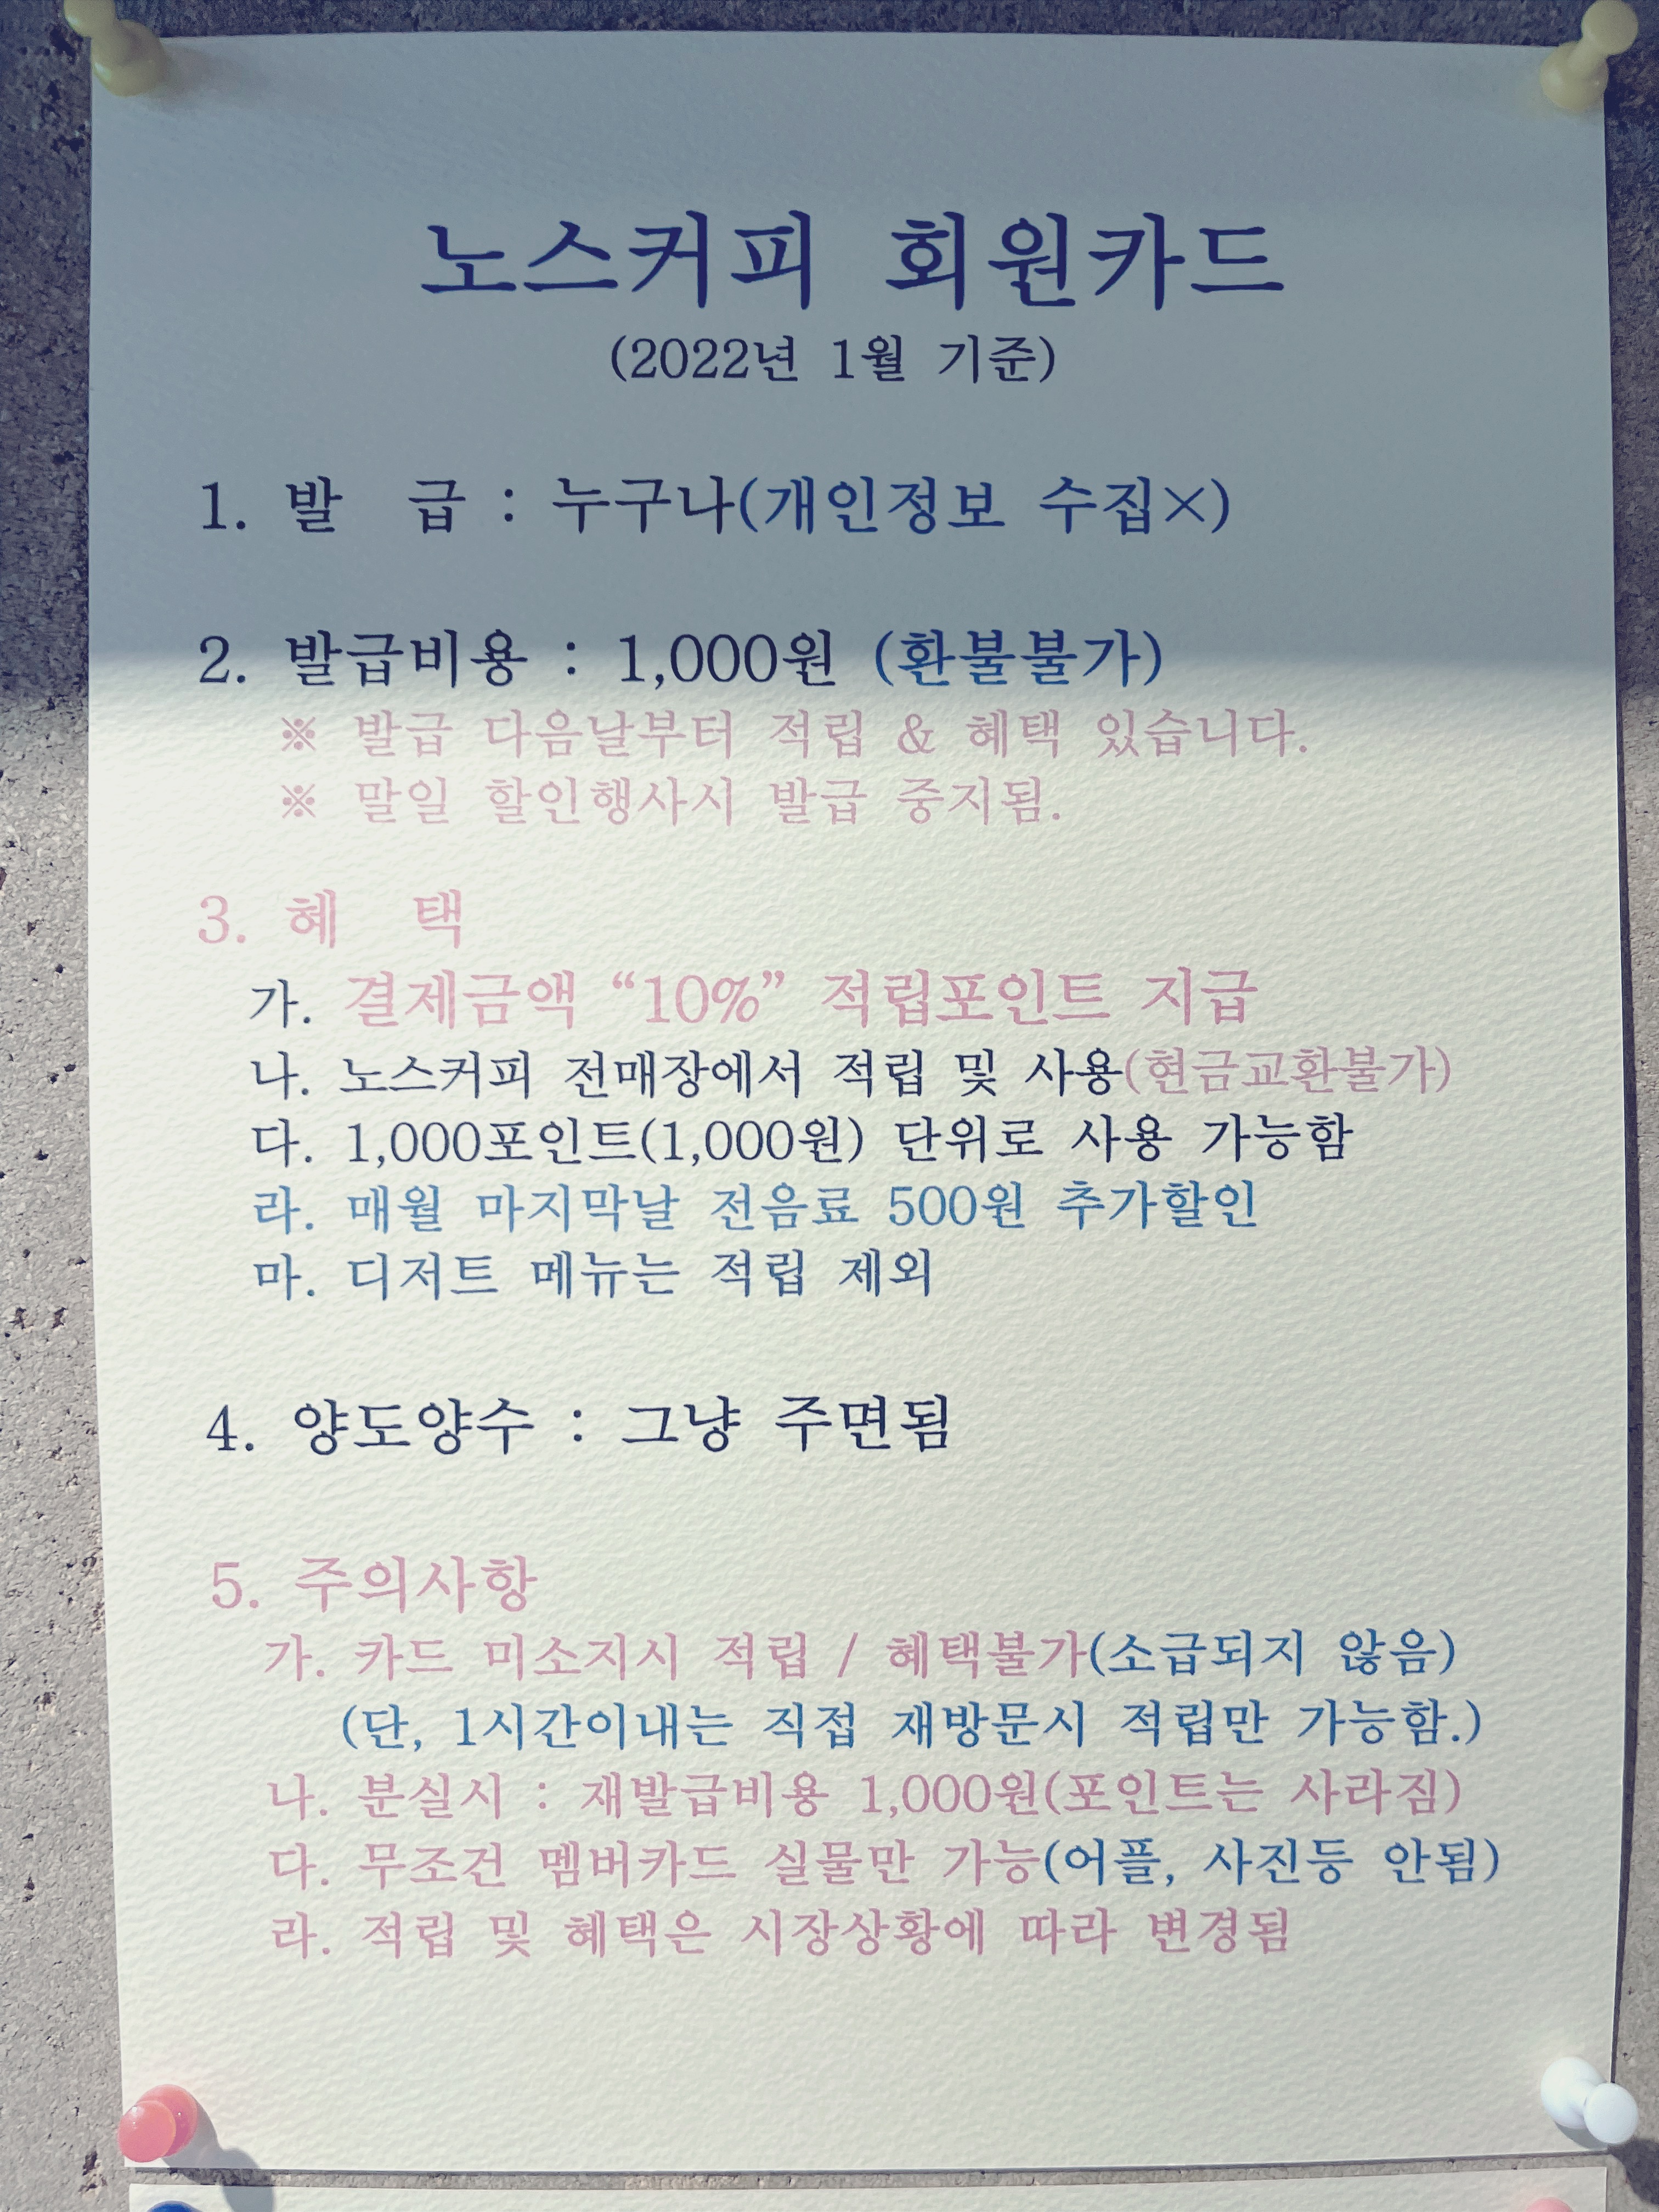 노스커피 회원카드
(2022년 1월 기준)
1. 발 급 : 누구나(개인정보 수집×)
2. 발급비용 : 1,000원 (환불불가)
※ 발급 다음날부터 적립 & 혜택 있습니다.
※ 말일 할인행사시 발급 중지됨.
3. 혜 택
가. 결제금액 “10%” 적립포인트 지급
나. 노스커피 전매장에서 적립 및 사용(현금교환불가)
다. 1,000포인트(1,000원) 단위로 사용 가능함
라. 매월 마지막날 전음료 500원 추가할인
마. 디저트 메뉴는 적립 제외
4. 양도양수 : 그냥 주면됨
5. 주의사항
가. 카드 미소지시 적립 / 혜택불가(소급되지 않음)
(단, 1시간이내는 직접 재방문시 적립만 가능함.)
나. 분실시 : 재발급비용 1,000원(포인트는 사라짐)
다. 무조건 멤버카드 실물만 가능(어플, 사진등 안됨)
라. 적립 및 혜택은 시장상황에 따라 변경됨